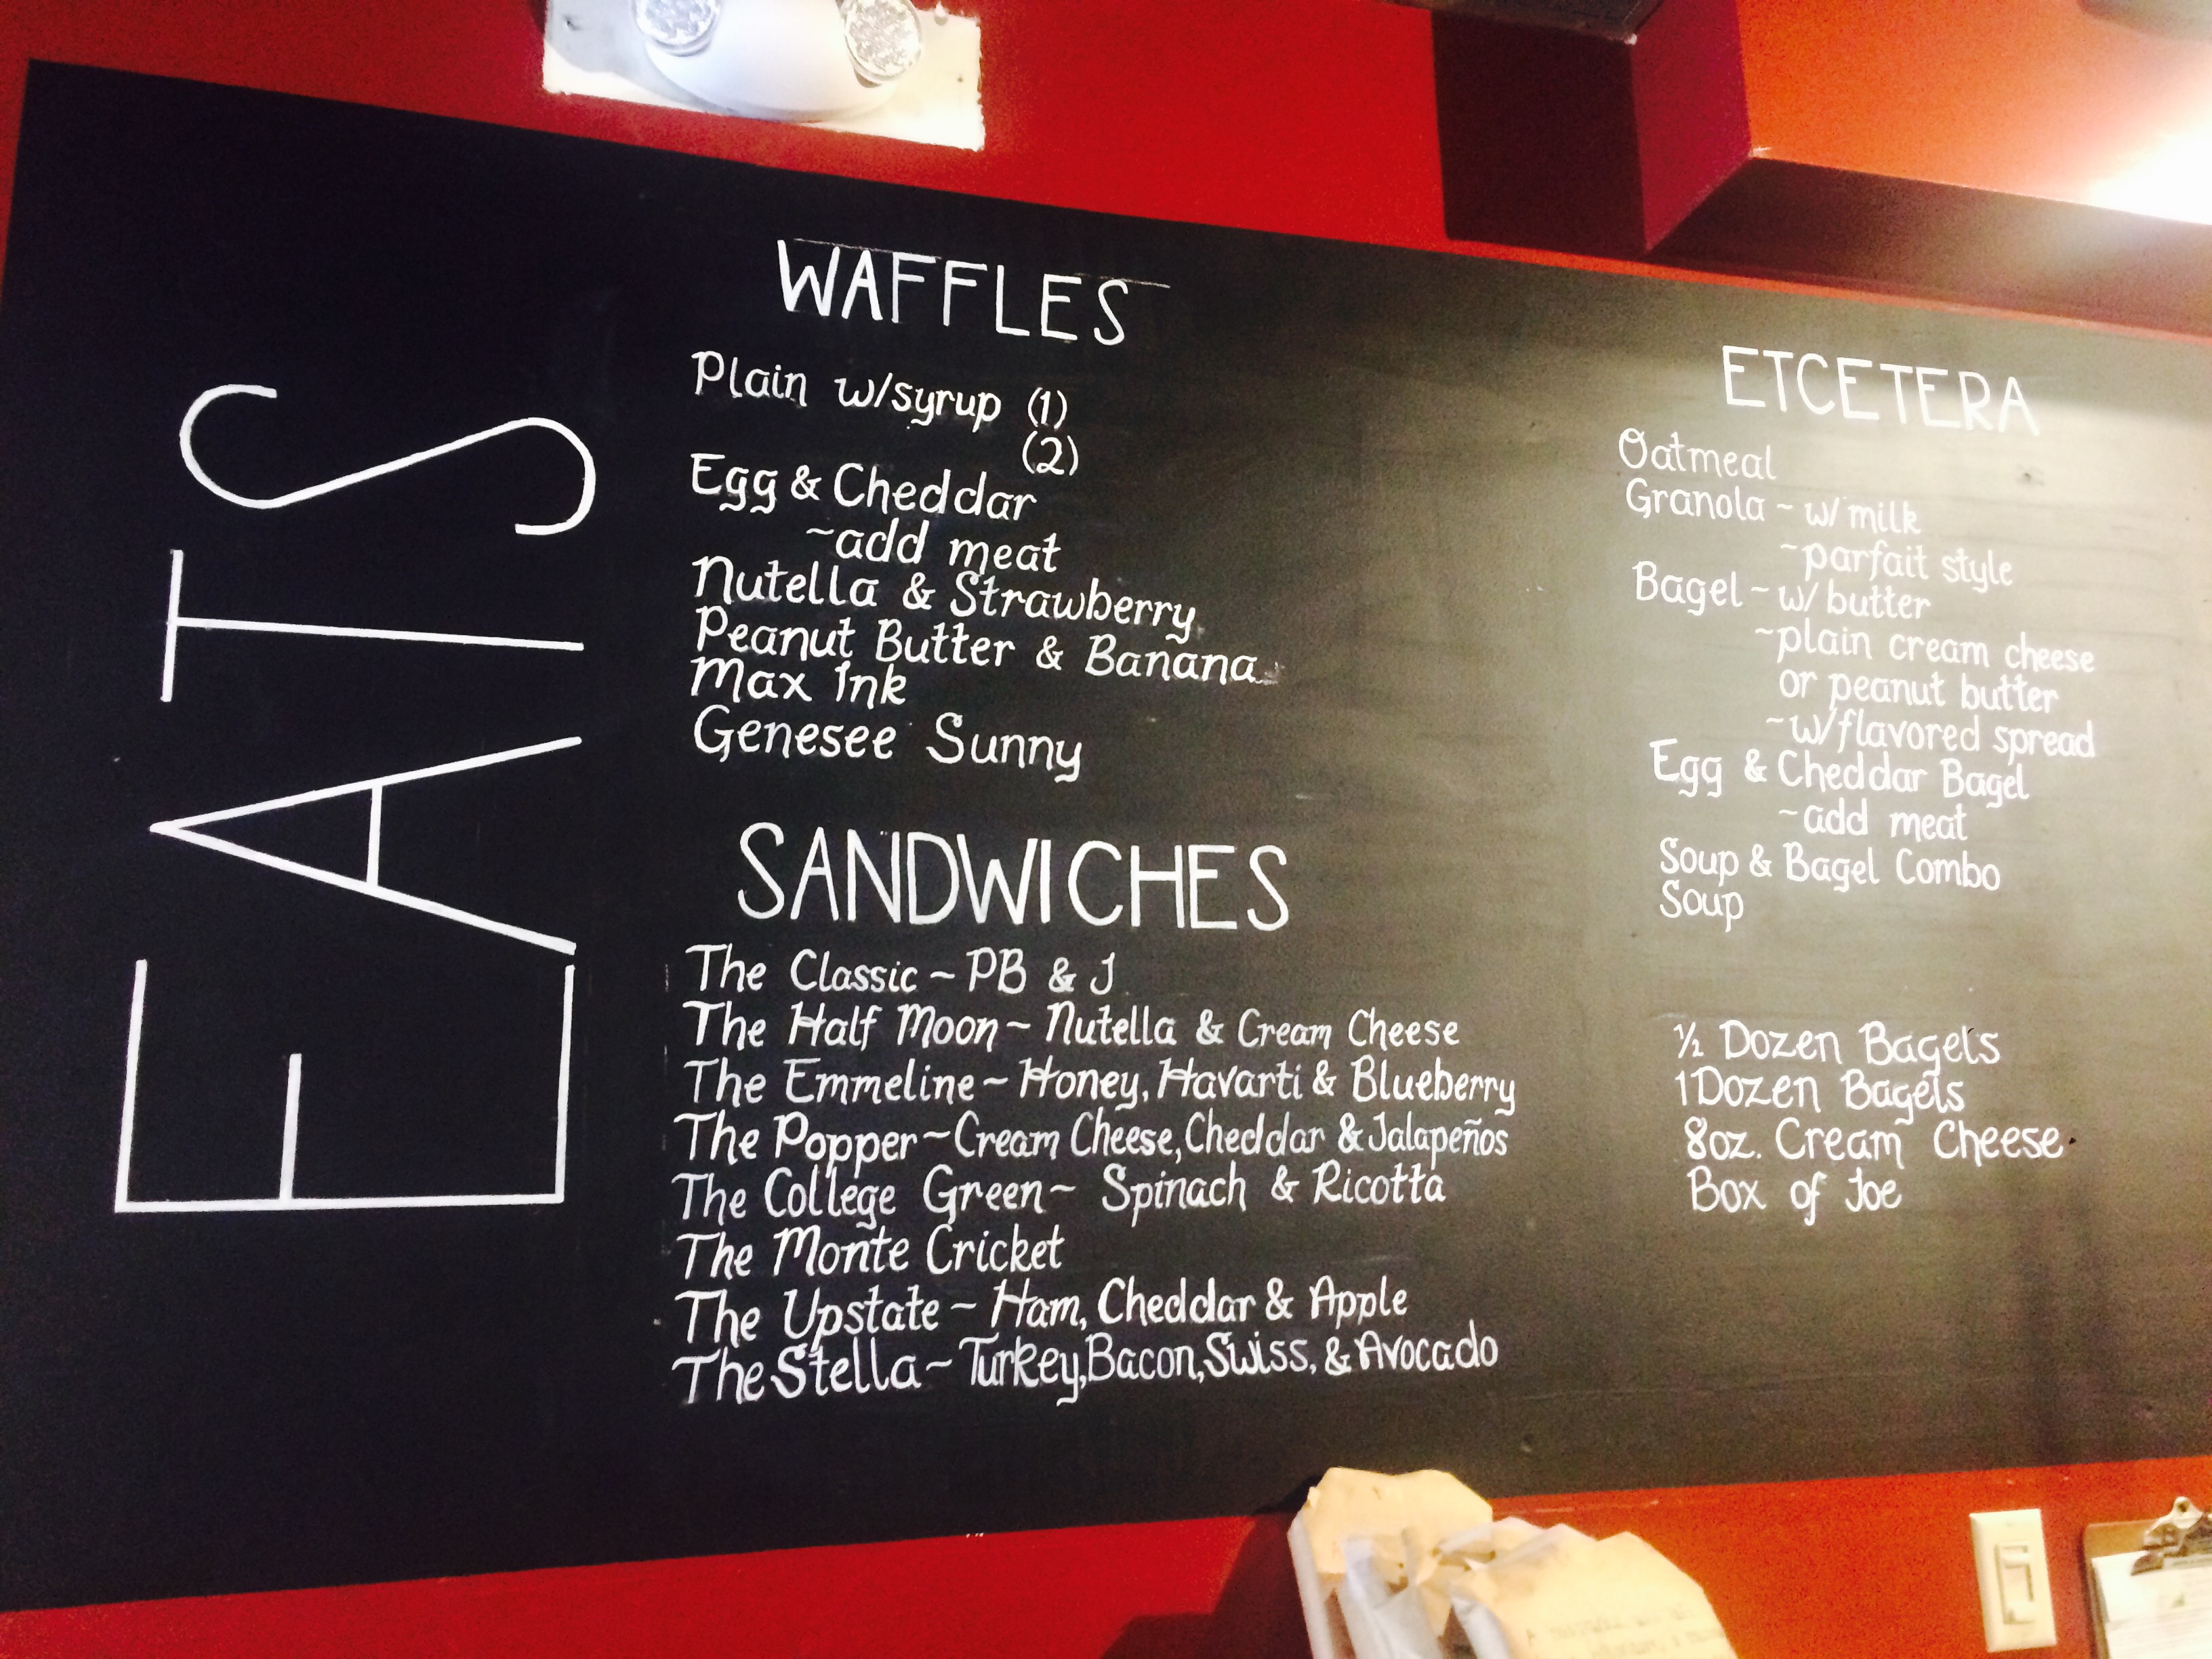 EATS
WAFFLES
Plain w/syrup (1)
(2)
Egg & Cheddar
~add meat
Nutella & Strawberry
Peanut Butter & Banana
Max Ink
Genesee Sunny
SANDWICHES
The Classic ~ PB & J
The Half Moon ~ Nutella & Cream Cheese
The Emmeline ~ Honey, Havarti & Blueberry
The Popper ~ Cream Cheese, Cheddar & Jalapeños
The College Green ~ Spinach & Ricotta
The Monte Cricket
The Upstate ~ Ham, Cheddar & Apple
The Stella ~ Turkey, Bacon, Swiss, & Avocado
ETCETERA
Oatmeal
Granola ~ w/ milk
~parfait style
Bagel ~ w/ butter
~plain cream cheese
or peanut butter
~w/flavored spread
Egg & Cheddar Bagel
~add meat
Soup & Bagel Combo
Soup
½ Dozen Bagels
1 Dozen Bagels
8oz. Cream Cheese
Box of Joe